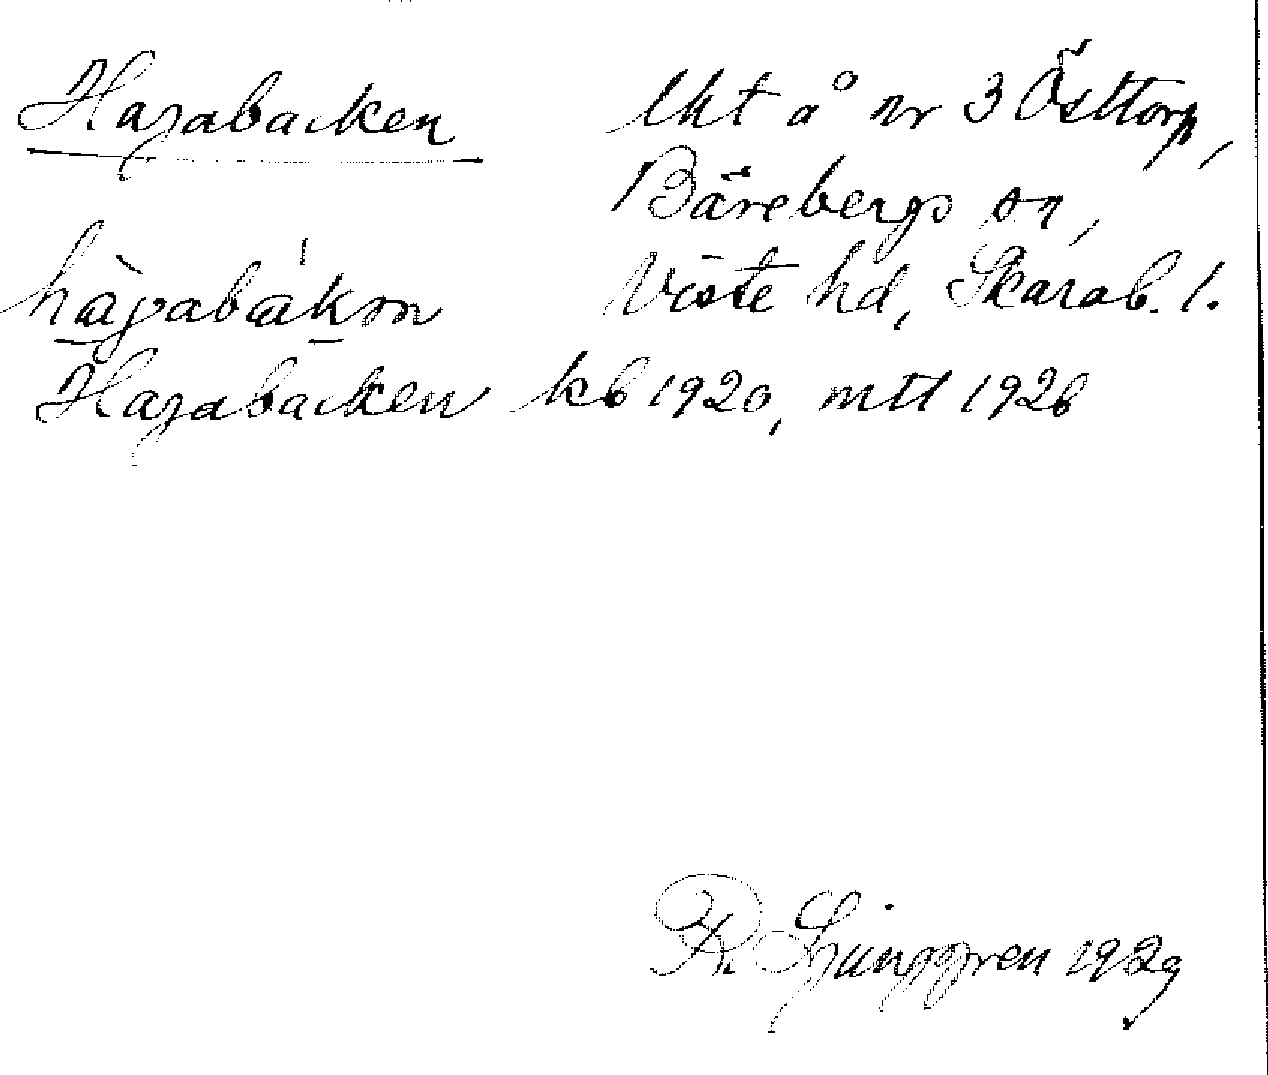 Hagabacken lht å nr 3 Östtorp,
Bärebergs sn,
Viste hd, Skarab. l.
hàgabákɔn
Hagabacken kb 1920, mtl 1926
R. Ljunggren 1929